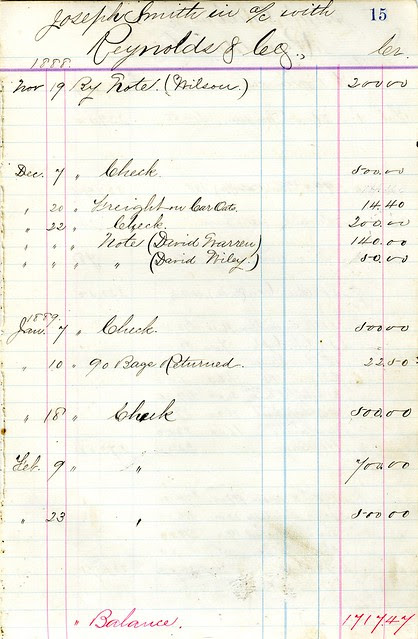 Joseph Smith in a/c with 15
Reynolds & Co., Cr.
1888
Nov 19 By Note. (Wilson.) 200.00
Dec. 7 " Check. 500.00
" 20 " Freight on Car Oats. 14.40
" 22 " Check. 200.00
" " " Note (David Warren) 140.00
" " " " (David Wiley) 50.00
1889.
Jan. 7 " Check. 500.00
" 10 " 90 Bags Returned. 22.50
" 18 " Check 500.00
Feb. 9 " " 700.00
" 23 " 500.00
" Balance. 1717.47